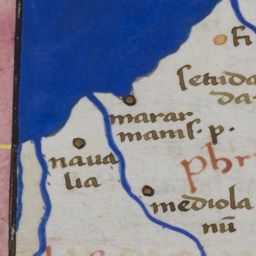 fi
setuda
da
marar
manis. p.
naua
lia
phr
mediola
nū